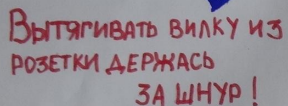 Вытягивать вилку из
розетки держась
за шнур!